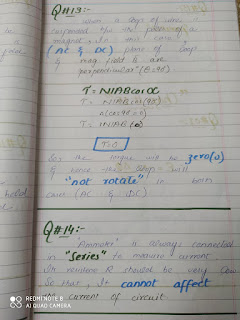 Q#13:-
when a loop of wire is
suspended the the poles of a
magnet. In this case
(AC & DC) plane of loop
& mag field B are
perpendicular (θ=90)
τ = NIAB cos α
τ = NIAB cos (90)
cos 90 = 0
τ = NIAB (0)
τ = 0
So the torque will be zero(0)
& hence the loop will
"not rotate" in both
cases (AC & DC)
Q#14:-
Ammeter is always connected
in "Series" to measure current
resistance R should be very low
So that, it cannot affect
the current of circuit
REDMI NOTE 8
AI QUAD CAMERA